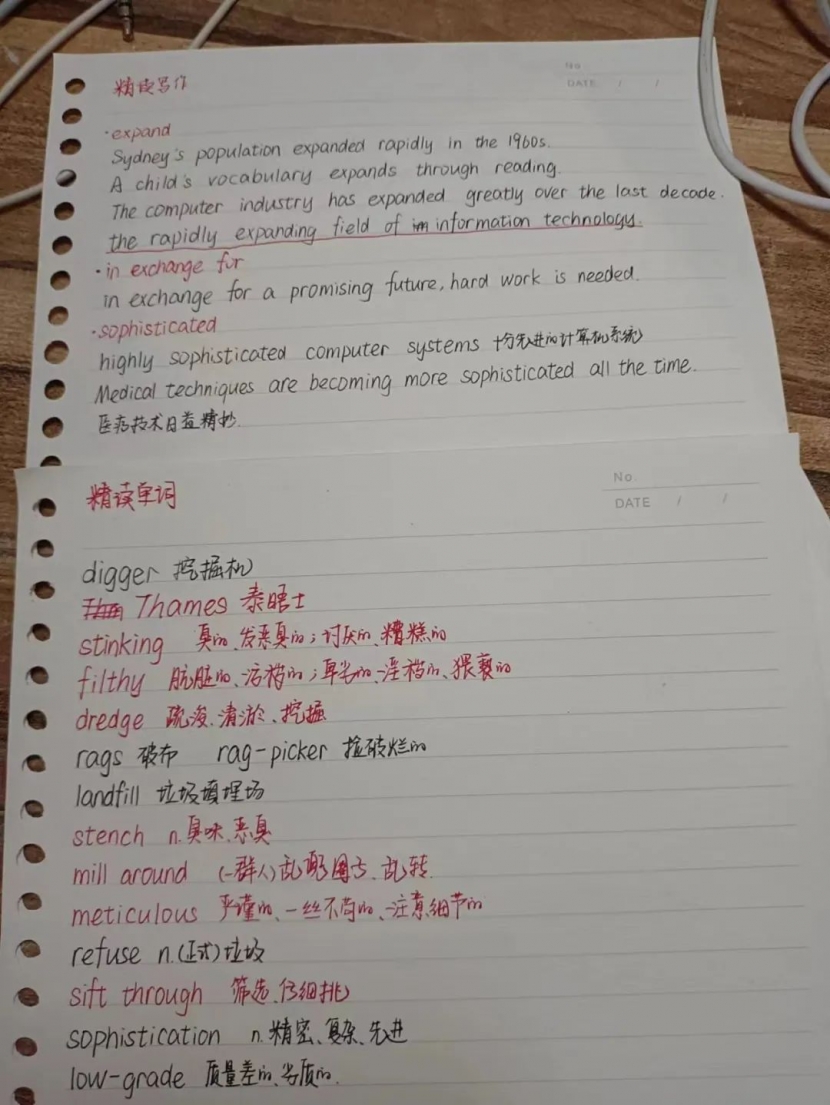 No
DATE / /
精读写作
·expand
Sydney's population expanded rapidly in the 1960s.
A child's vocabulary expands through reading.
The computer industry has expanded greatly over the last decade.
the rapidly expanding field of information technology.
·in exchange for
in exchange for a promising future, hard work is needed.
·sophisticated
highly sophisticated computer systems 十分先进的计算机系统
Medical techniques are becoming more sophisticated all the time.
医疗技术日益精妙.
No.
DATE / /
精读单词
digger 挖掘机
Thames 泰晤士
stinking 臭的、发恶臭的;讨厌的、糟糕的
filthy 肮脏的、污秽的;下流的、淫秽的、猥亵的
dredge 疏浚、清淤、挖掘
rags 破布 rag-picker 捡破烂的
landfill 垃圾填埋场
stench n.臭味、恶臭
mill around (一群人)乱转
meticulous 严谨的、一丝不苟的、注意细节的
refuse n.(正式)垃圾
sift through 筛选、仔细挑
sophistication n.精密、复杂、先进
low-grade 质量差的、劣质的.